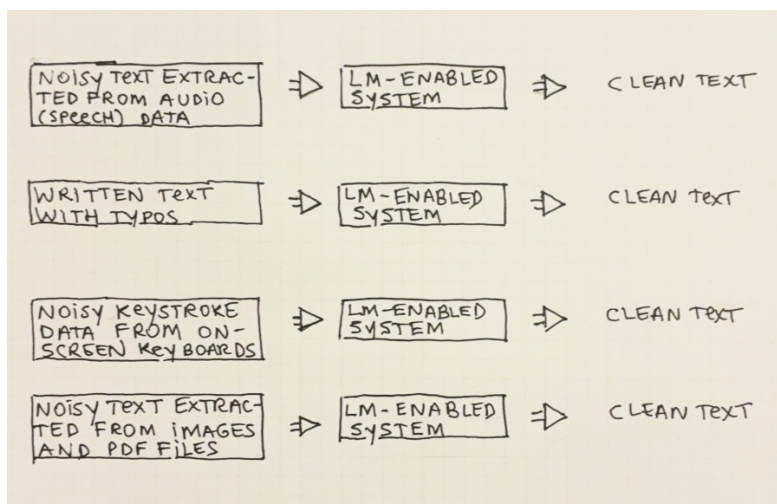 NOISY TEXT EXTRAC-
TED FROM AUDIO
(SPEECH) DATA
LM-ENABLED
SYSTEM
CLEAN TEXT
WRITTEN TEXT
WITH TYPOS
LM-ENABLED
SYSTEM
CLEAN TEXT
NOISY KEYSTROKE
DATA FROM ON-
SCREEN KEYBOARDS
LM-ENABLED
SYSTEM
CLEAN TEXT
NOISY TEXT EXTRAC-
TED FROM IMAGES
AND PDF FILES
LM-ENABLED
SYSTEM
CLEAN TEXT